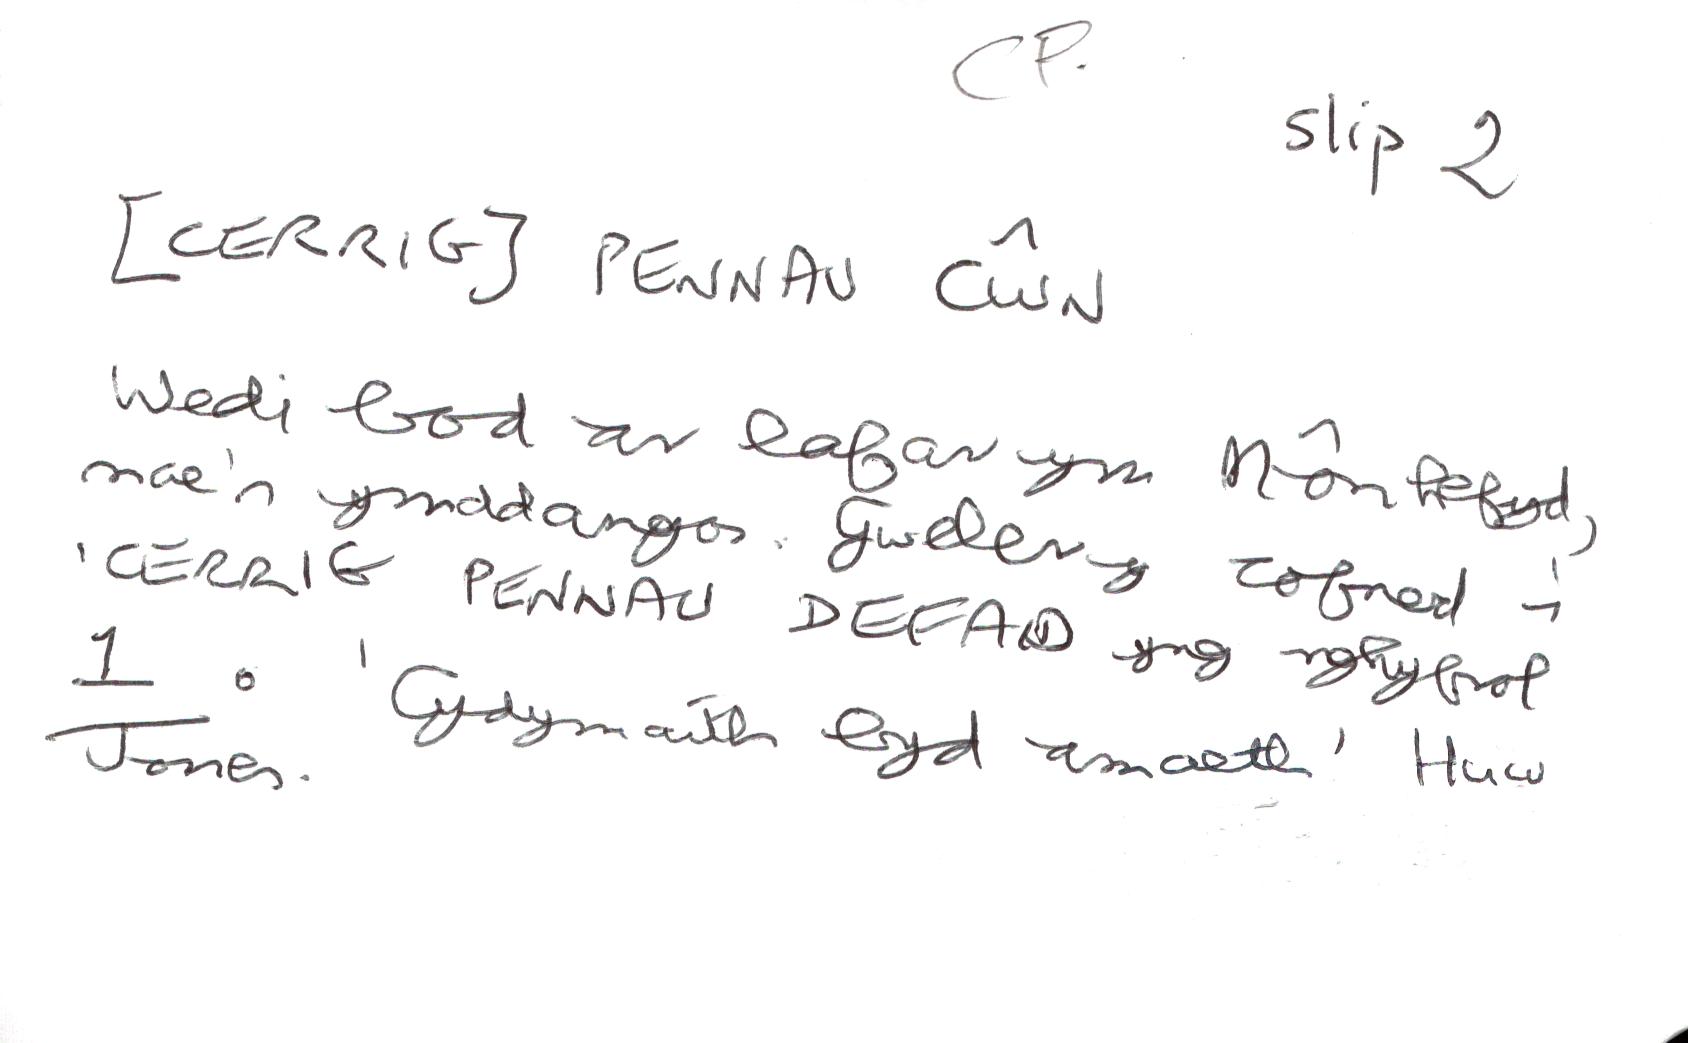 CP.
slip 2
[CERRIG] PENNAU CŴN
Wedi bod ar lafar ym Môn hefyd,
mae'n ymddangos. Gweler y cofnod i
'CERRIG PENNAU DEFAID yng nghyfrol
1 o 'Cydymaith byd amaeth' Huw
Jones.